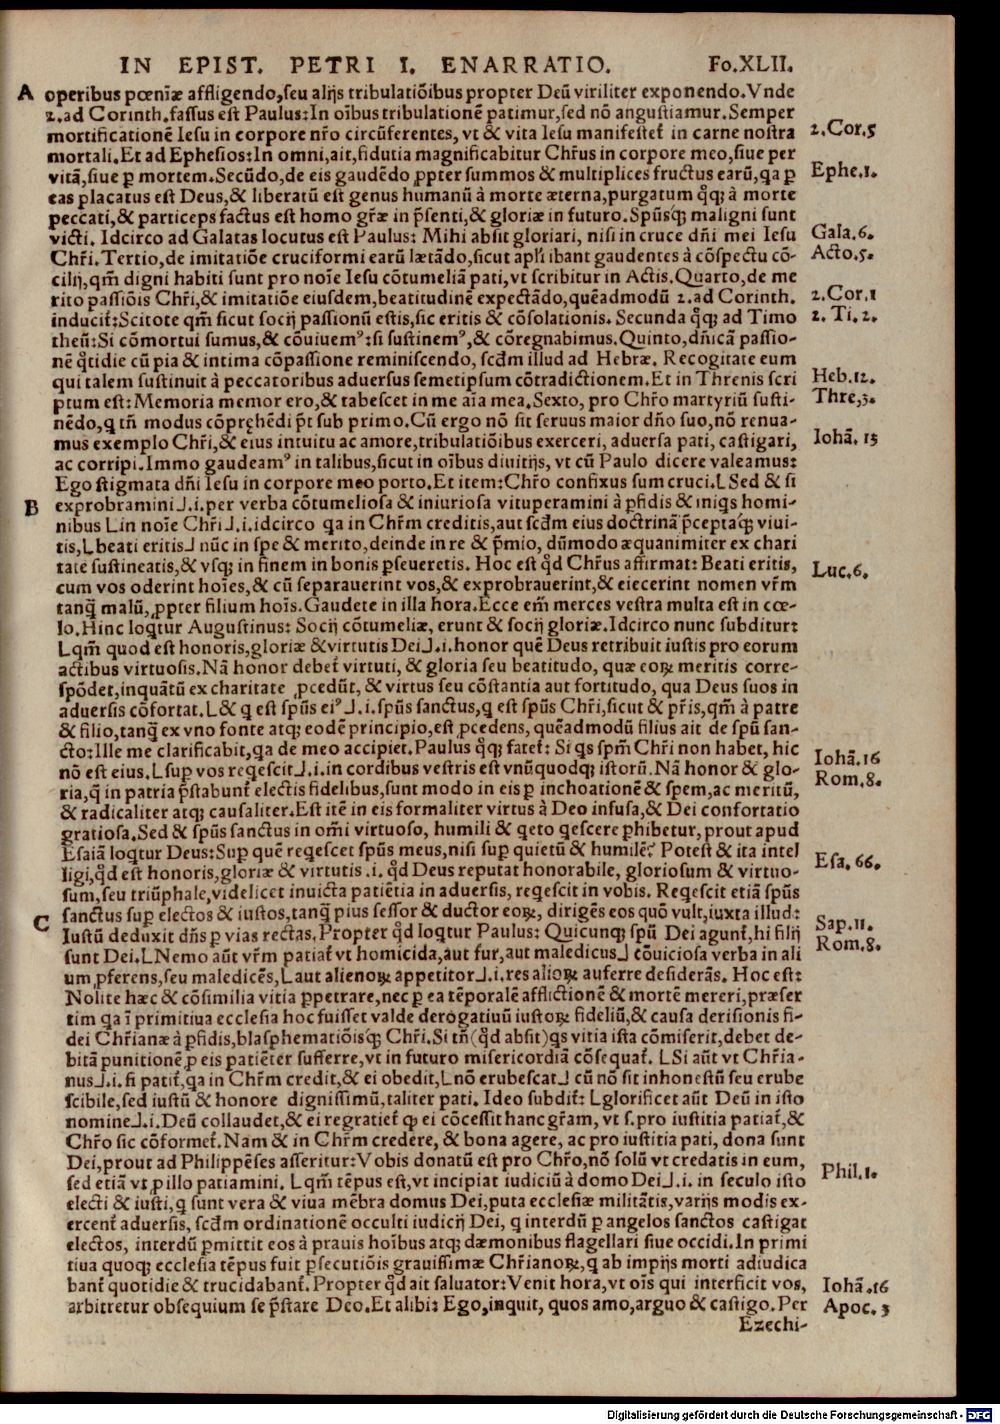 IN EPIST. PETRI I. ENARRATIO. Fo.XLII.
A operibus pœniæ affligendo,seu alijs tribulatiõibus propter Deũ viriliter exponendo.Vnde
2.ad Corinth.fassus est Paulus:In oĩbus tribulationẽ patimur,sed nõ angustiamur.Semper
mortificationẽ Iesu in corpore nr̃o circũferentes, vt & vita Iesu manifestet̃ in carne nostra 2.Cor.5
mortali.Et ad Ephesios:In omni,ait,fidutia magnificabitur Chr̃us in corpore meo,siue per
vitã,siue ꝑ mortem.Secũdo,de eis gaudẽdo ꝓpter summos & multiplices fructus earũ,qa ꝑ Ephe.1.
eas placatus est Deus,& liberatũ est genus humanũ à morte æterna,purgatum qq̃; à morte
peccati,& particeps factus est homo gr̃æ in p̃senti,& gloriæ in futuro.Spũsq́; maligni sunt
victi. Idcirco ad Galatas locutus est Paulus: Mihi absit gloriari, nisi in cruce dñi mei Iesu Gala.6.
Chr̃i.Tertio,de imitatiõe cruciformi earũ lætãdo,sicut apl̃i ibant gaudentes à cõspectu cõ- Acto.5.
cilij,qm̃ digni habiti sunt pro noĩe Iesu cõtumeliã pati,vt scribitur in Actis.Quarto,de me
rito passiõis Chr̃i,& imitatiõe eiusdem,beatitudinẽ expectãdo,quẽadmodũ 2.ad Corinth. 2.Cor.1
inducit̃:Scitote qm̃ sicut socij passionũ estis,sic eritis & cõsolationis. Secunda qq̃; ad Timo 2. Ti. 2.
theũ:Si cõmortui sumus,& cõuiuemꝰ:si sustinemꝰ,& cõregnabimus.Quinto,dñicã passio-
nẽ q̃tidie cũ pia & intima cõpassione reminiscendo, scd̃m illud ad Hebræ. Recogitate eum
qui talem sustinuit à peccatoribus aduersus semetipsum cõtradictionem.Et in Threnis scri Heb.12.
ptum est:Memoria memor ero,& tabescet in me aĩa mea.Sexto, pro Chr̃o martyriũ susti- Thre,3.
nẽdo,q tñ modus cõpręhẽdi p̃t sub primo.Cũ ergo nõ sit seruus maior dño suo,nõ renua-
mus exemplo Chr̃i,& eius intuitu ac amore,tribulatiõibus exerceri, aduersa pati, castigari, Iohã. 15
ac corripi.Immo gaudeamꝰ in talibus,sicut in oĩbus diuitijs, vt cũ Paulo dicere valeamus:
Ego stigmata dñi Iesu in corpore meo porto.Et item:Chr̃o confixus sum cruci.⌊Sed & si
B exprobramini⌋.i.per verba cõtumeliosa & iniuriosa vituperamini à ꝑfidis & iniqs homi-
nibus ⌊in noĩe Chr̃i⌋.i.idcirco qa in Chr̃m creditis,aut scd̃m eius doctrinã p̃ceptaq́; viui-
tis,⌊beati eritis⌋ nũc in spe & merito,deinde in re & p̃mio, dũmodo æquanimiter ex chari
tate sustineatis,& vsq; in finem in bonis ꝑseueretis. Hoc est qd̃ Chr̃us affirmat: Beati eritis, Luc.6.
cum vos oderint hoĩes, & cũ separauerint vos,& exprobrauerint,& eiecerint nomen vr̃m
tanq̃ malũ, ꝓpter filium hoĩs.Gaudete in illa hora.Ecce em̃ merces vestra multa est in cœ-
lo.Hinc loqtur Augustinus: Socij cõtumeliæ, erunt & socij gloriæ.Idcirco nunc subditur:
⌊qm̃ quod est honoris,gloriæ &virtutis Dei⌋.i.honor quẽ Deus retribuit iustis pro eorum
actibus virtuosis.Nã honor debet̃ virtuti, & gloria seu beatitudo, quæ eoꝝ meritis corre-
spõdet,inquãtũ ex charitate ꝓcedũt, & virtus seu cõstantia aut fortitudo, qua Deus suos in
aduersis cõfortat.⌊& q est spũs eiꝰ⌋.i.spũs sanctus,q est spũs Chr̃i,sicut & pr̃is,qm̃ à patre
& filio,tanq̃ ex vno fonte atq; eodẽ principio,est ꝓcedens, quẽadmodũ filius ait de spũ san-
cto:Ille me clarificabit,qa de meo accipiet.Paulus qq̃; fatet̃: Si qs spm̃ Chr̃i non habet, hic Iohã.16
nõ est eius.⌊sup vos reqescit⌋.i.in cordibus vestris est vnũquodq; istorũ.Nã honor & glo- Rom.8.
ria,q̃ in patria p̃stabunt̃ electis fidelibus,sunt modo in eis ꝑ inchoationẽ & spem,ac meritũ,
& radicaliter atq; causaliter.Est itẽ in eis formaliter virtus à Deo infusa,& Dei confortatio
gratiosa.Sed & spũs sanctus in om̃i virtuoso, humili & qeto qescere ꝑhibetur,prout apud
Esaiã loqtur Deus:Suꝑ quẽ reqescet spũs meus,nisi suꝑ quietũ & humilẽ? Potest & ita intel Esa. 66.
ligi,qd̃ est honoris,gloriæ & virtutis .i. qd̃ Deus reputat honorabile, gloriosum & virtuo-
sum,seu triũphale,videlicet inuicta patiẽtia in aduersis, reqescit in vobis. Reqescit etiã spũs
C sanctus suꝑ electos & iustos,tanq̃ pius sessor & ductor eoꝝ, dirigẽs eos quõ vult,iuxta illud: Sap.11.
Iustũ deduxit dñs ꝑ vias rectas.Propter qd̃ loqtur Paulus: Quicunq; spũ Dei agunt̃,hi filij Rom.8.
sunt Dei.⌊Nemo aũt vr̃m patiat̃ vt homicida,aut fur,aut maledicus⌋ cõuiciosa verba in ali
um ꝓferens,seu maledicẽs,⌊aut alienoꝝ appetitor⌋.i.res alioꝝ auferre desiderãs. Hoc est:
Nolite hæc & cõsimilia vitia ꝑpetrare,nec ꝑ ea tẽporalẽ afflictionẽ & mortẽ mereri,præser
tim qa ĩ primitiua ecclesia hoc fuisset valde derogatiuũ iustoꝝ fideliũ,& causa derisionis fi-
dei Chr̃ianæ à ꝑfidis,blasphematiõisq́; Chr̃i.Si tñ(qd̃ absit)qs vitia ista cõmiserit,debet de-
bitã punitionẽ ꝓ eis patiẽter sufferre,vt in futuro misericordiã cõsequat̃. ⌊Si aũt vt Chr̃ia-
nus⌋.i.si patit̃,qa in Chr̃m credit,& ei obedit,⌊nõ erubescat⌋ cũ nõ sit inhonestũ seu erube
scibile,sed iustũ & honore dignissimũ,taliter pati. Ideo subdit̃: ⌊glorificet aũt Deũ in isto
nomine⌋.i.Deũ collaudet,& ei regratiet̃ qꝫ ei cõcessit hanc gr̃am, vt s.pro iustitia patiat̃,&
Chr̃o sic cõformet̃.Nam & in Chr̃m credere, & bona agere, ac pro iustitia pati, dona sunt
Dei,prout ad Philippẽses asseritur:Vobis donatũ est pro Chr̃o,nõ solũ vt credatis in eum, Phil.1.
sed etiã vt ꝓ illo patiamini. ⌊qm̃ tẽpus est,vt incipiat iudiciũ à domo Dei⌋.i. in seculo isto
electi & iusti,q sunt vera & viua mẽbra domus Dei,puta ecclesiæ militãtis,varijs modis ex-
ercent̃ aduersis, scd̃m ordinationẽ occulti iudicij Dei, q interdũ ꝑ angelos sanctos castigat
electos, interdũ ꝑmittit eos à prauis hoĩbus atq; dæmonibus flagellari siue occidi.In primi
tiua quoq; ecclesia tẽpus fuit ꝑsecutiõis grauissimæ Chr̃ianoꝝ,q ab impijs morti adiudica
bant̃ quotidie & trucidabant̃.Propter qd̃ ait saluator:Venit hora,vt oĩs qui interficit vos, Iohã.16
arbitretur obsequium se p̃stare Deo.Et alibi: Ego,inquit, quos amo,arguo & castigo.Per Apoc. 3
Ezechi-
Digitalisierung gefördert durch die Deutsche Forschungsgemeinschaft - DFG